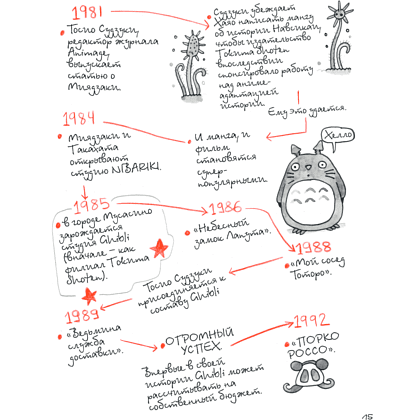 1981
Тосио Судзуки,
редактор журнала
Animage,
выпускает
статью о
Миядзаки.
Судзуки убеждает
Хаяо написать мангу
об истории Навсикаи,
чтобы издательство
Tokuma Shoten
впоследствии
спонсировало работу
над аниме-
адаптацией
истории.
Ему это удается.
1984
Миядзаки и
Такахата
открывают
студию NIBARIKI.
И манга, и
фильм
становятся
супер-
популярными
Хелло
1985
в городе Мусасино
зарождается
студия Ghibli
(вначале – как
филиал Tokuma
Shoten).
1986
«Небесный
замок Лапута».
1988
«Мой сосед
Тоторо».
Тосио Судзуки
присоединяется к
составу Ghibli
1989
«Ведьмина
служба
доставки».
ОГРОМНЫЙ
УСПЕХ
Впервые в своей
истории Ghibli может
рассчитывать на
собственный бюджет.
1992
«ПОРКО
РОССО».